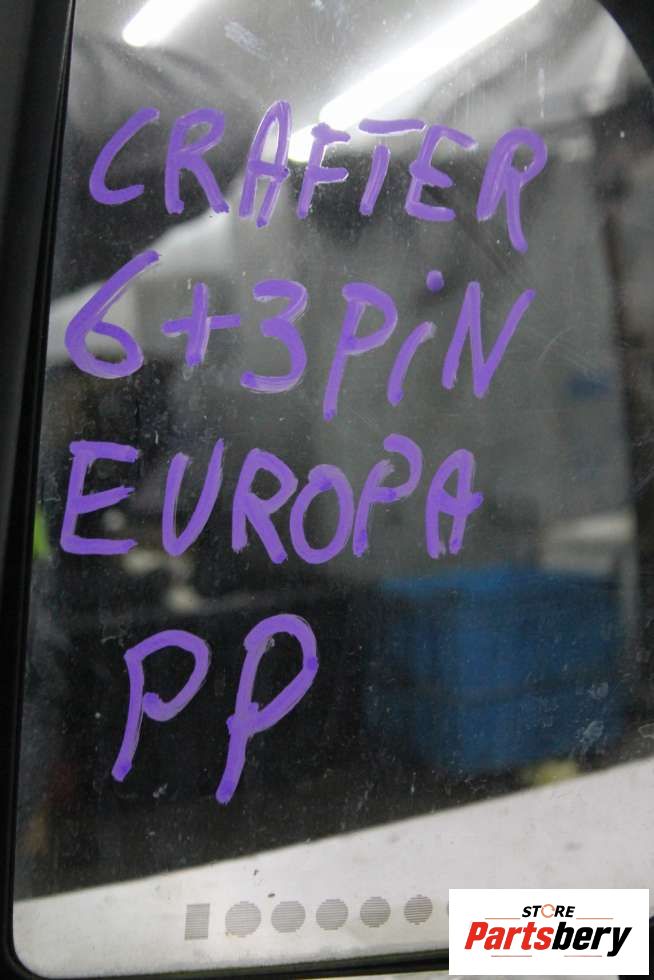 CRAFTER
6+3PiN
EUROPA
PP
STORE
Partsbery